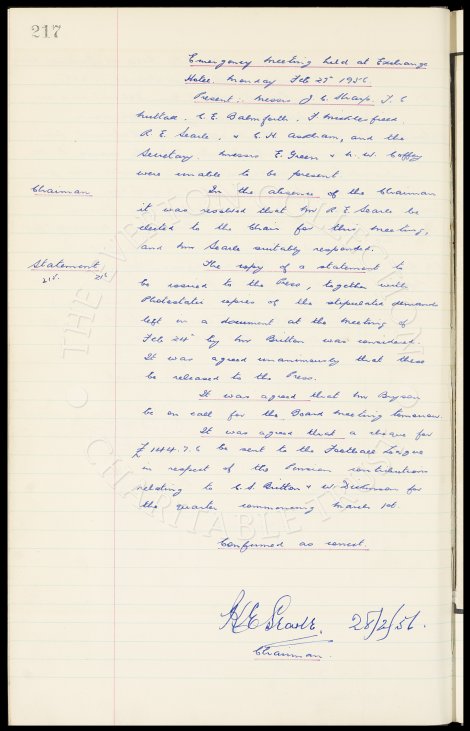 217
Emergency Meeting held at Exchange
Hotel. Monday Feb 27 1956
Present:. Messrs J. C. Sharp. T. C
Nuttall. C. E. Balmforth. F Micklesfreed.
R. E. Searle. & C. H. Askham, and the
Secretary. Messrs F. Green & N. W. Coffey
were unable to be present
Chairman
In the absence of the Chairman
it was resolved that Mr R. E Searle be
elected to the Chair for this Meeting,
and Mr Searle suitably responded.
Statement
215. 216
The copy of a statement to
be issued to the Press, together with
Photostatic copies of the stipulated demands
left in a document at the Meeting of
Feb 24th by Mr Britton was considered.
It was agreed unanimously that these
be released to the Press.
It was agreed that Mr Bryson
be on call for the Board Meeting tomorrow.
It was agreed that a cheque for
£144.7.6 be sent to the Football League
in respect of the Pension contributions
relating to C. S. Britton & W. Dickinson for
the quarter commencing March 1st
Confirmed as correct.
R E Searle. 28/2/56.
Chairman.
THE EVERTON COLLECTION
CHARITABLE TRUST